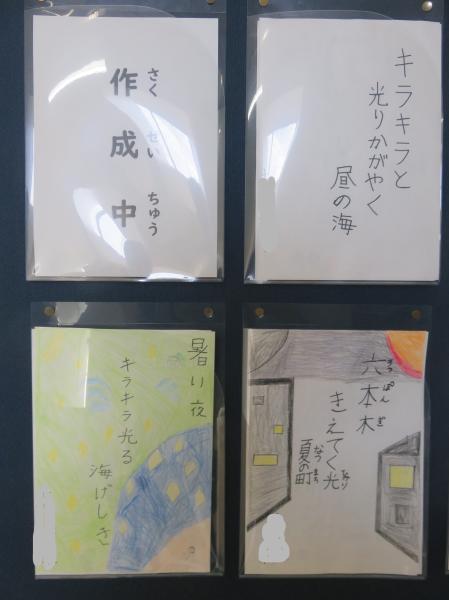 作成中
さくせいちゅう
キラキラと
光りかがやく
昼の海
暑い夜
キラキラ光る
海げしき
六本木
ろっぽんぎ
きえてく光
ひかり
夏の町
なつまち